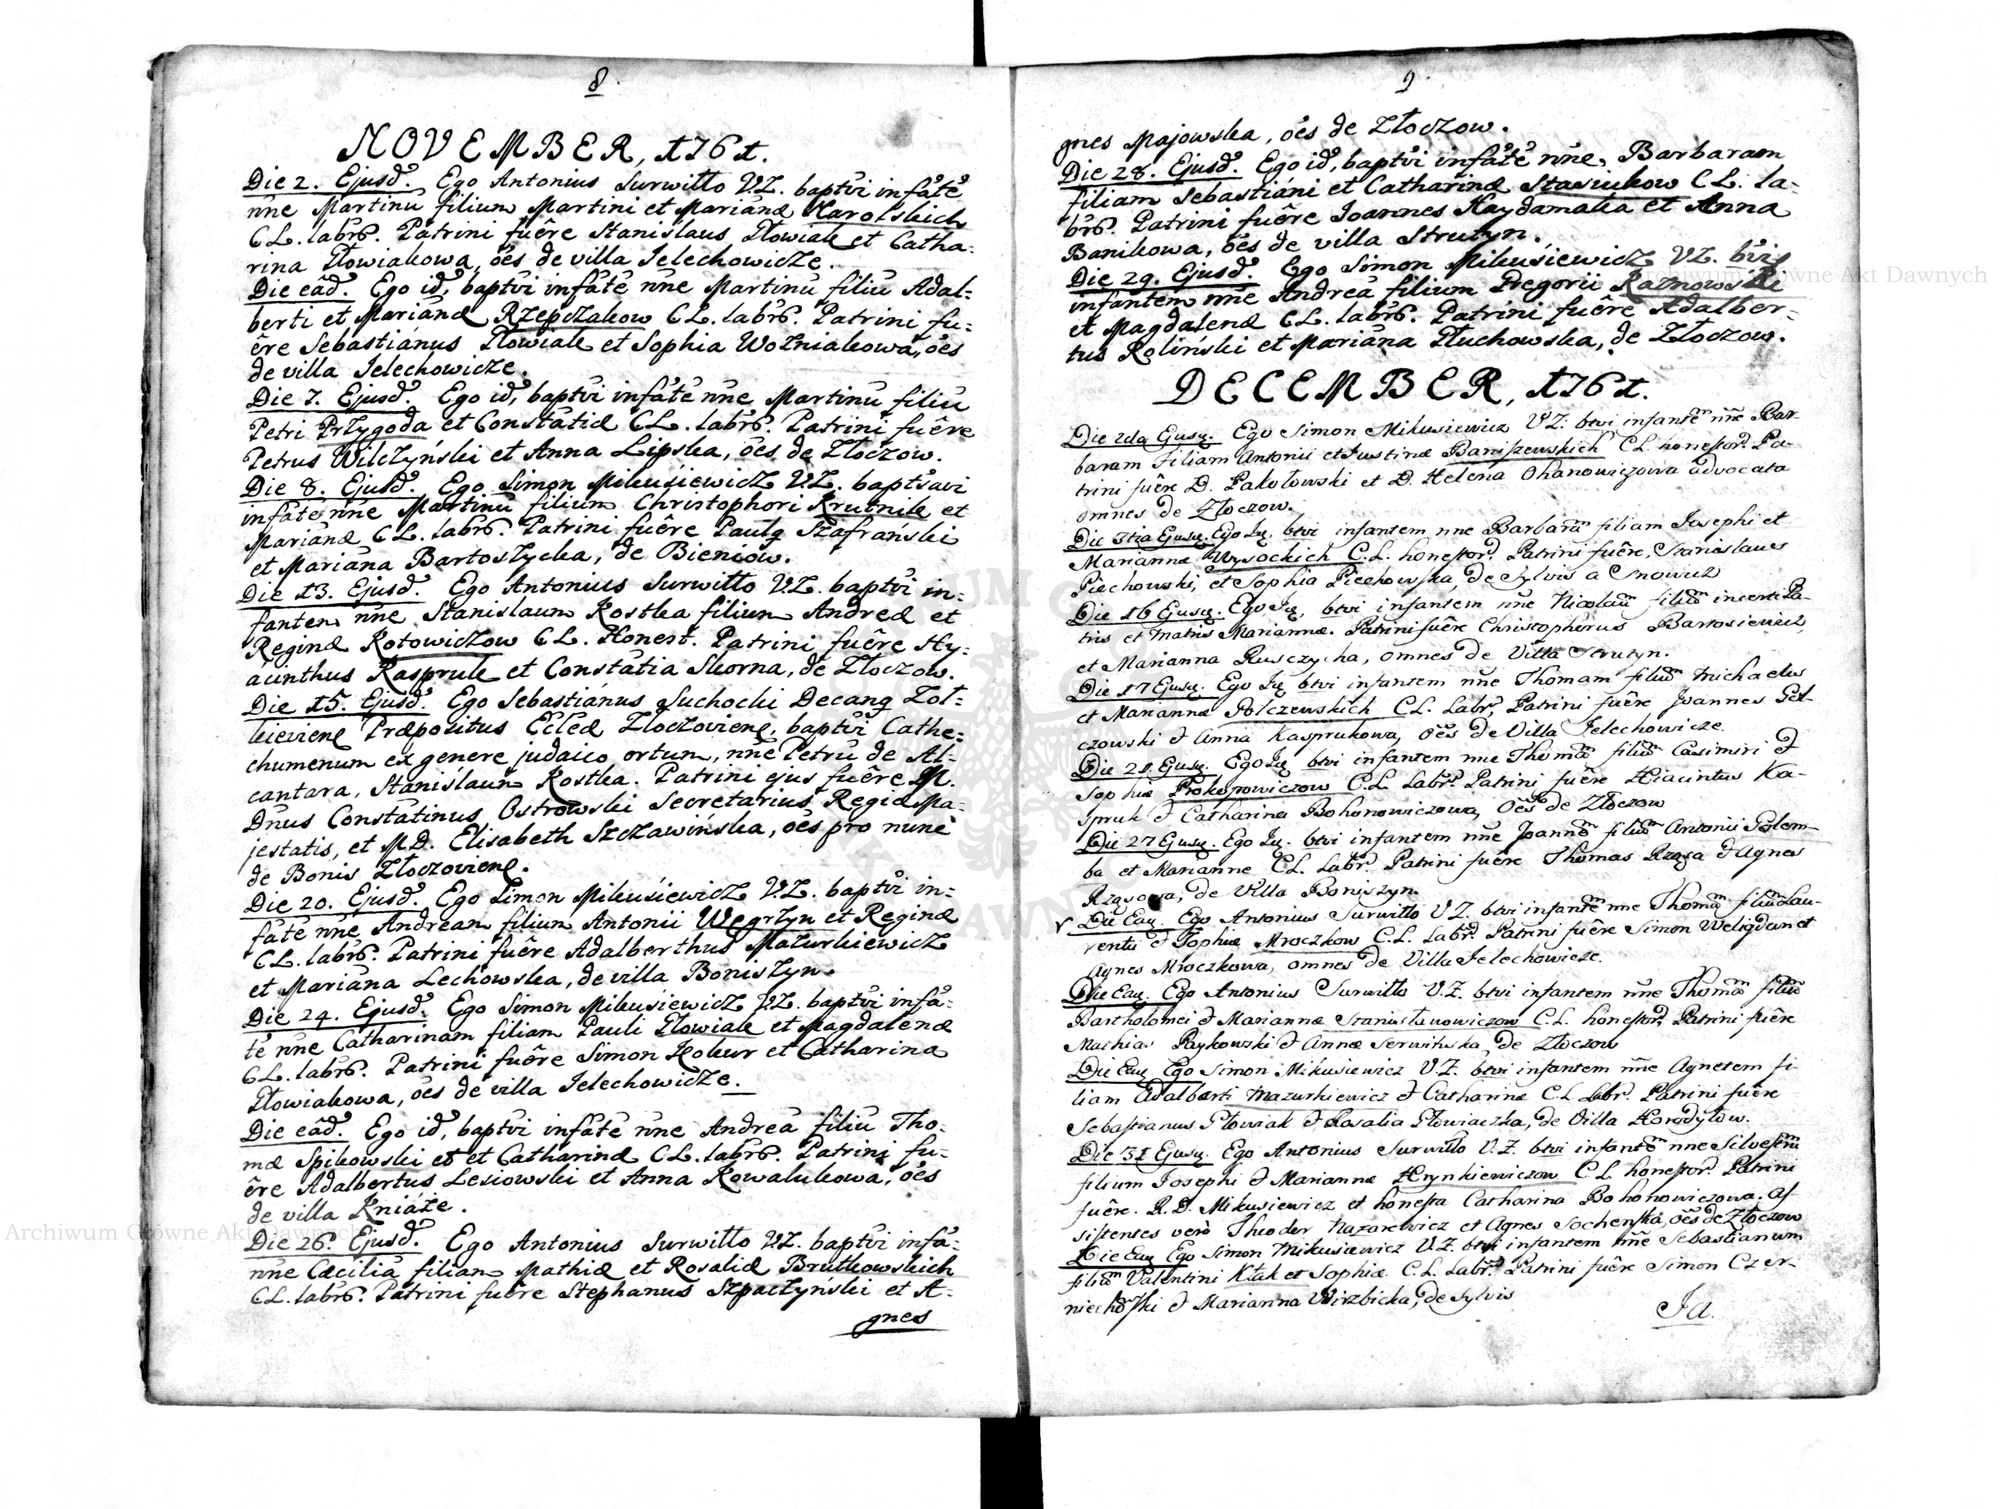 8.
NOVEMBER, 1761.
Die 2. Ejusd. Ego Antonius Surwiłło V.Z. baptvi infãtẽ
nñe Martinũ filium Martini et Marianæ Karolskich
CL. labrs. Patrini fuêre Stanislaus Głowiak et Catha-
rina Głowiakowa, oẽs de villa Jelechowicze.
Die eâd. Ego id, baptvi infãtẽ nñe Martinũ filiũ Adal-
berti et Marianæ Rzepczakow CL. labrs. Patrini fu-
êre Sebastianus Głowiak et Sophia Wozniakowa, oẽs
de villa Jelechowicze.
Die 7. Ejusd. Ego id, baptvi infãtẽ nñe Martinũ filiũ
Petri Przygoda et Constãtiæ CL. labrs. Patrini fuêre
Petrus Wilczyński et Anna Lipska, oẽs de Złoczow.
Die 8. Ejusd. Ego Simon Mikusiewicz V.Z. baptsavi
infãtẽ nñe Martinũ filium Christophori Krutnik et
Marianæ CL. labrs. Patrini fuêre Paulg Szafrański
et Mariana Bartoszycka, de Bieniow.
Die 13. Ejusd. Ego Antonius Surwiłło V.Z. baptvi in-
fantem nñe Stanislaum Kostka filium Andreæ et
Reginæ Kotowiczow CL. Honest. Patrini fuêre Hy-
acinthus Kaspruk et Constãtia Skorna, de Złoczow.
Die 15. Ejusd. Ego Sebastianus Suchocki Decang Zoł-
kieviene Præpositus Eccleæ Zloczoviene, baptvi Cathe-
chumenum ex genere judaico ortum, nñe Petrũ de Al-
cantara, Stanislaum Kostka. Patrini ejus fuêre M.
Dnus Constãtinus Ostrowski Secretarius Regiæ Ma-
jestatis, et M.D. Elisabeth Szczawińska, oẽs pro nunc
de Bonis Złoczoviene.
Die 20. Ejusd. Ego Simon Mikusiewicz V.Z. baptvi in-
fãtẽ nñe Andream filium Antonii Węgrzyn et Reginæ
CL. labrs. Patrini fuêre Adalberthus Mazurkiewicz
et Mariana Lechowska, de villa Boniszyn.
Die 24. Ejusd. Ego Simon Mikusiewicz V.Z. baptvi infã-
tẽ nñe Catharinam filiam Pauli Głowiak et Magdalenæ
CL. labrs. Patrini fuêre Simon Kobur et Catharina
Głowiakowa, oẽs de villa Jelechowicze.
Die eâd. Ego id, baptvi infãtẽ nñe Andreã filiũ Tho-
mæ Spikowski et et Catharinæ CL. labrs. Patrini fu-
êre Adalbertus Lesiowski et Anna Kowalukowa, oẽs
de villa Kniaże.
Die 26. Ejusd. Ego Antonius Surwiłło V.Z. baptvi infã-
nñe Cæciliã filiam Mathiæ et Rosaliæ Brutkowskich
CL. labrs. Patrini fuêre Stephanus Szpaczyński et A-
gnes
9.
gnes Majowska, oẽs de Złoczow.
Die 28. Ejusd. Ego id, baptvi infãtẽ nñe, Barbaram
filiam Sebastiani et Catharinæ Stasiukow CL. la-
brs. Patrini fuêre Joannes Haydamaka et Anna
Banikowa, oẽs de villa Strutyn.
Die 29. Ejusd. Ego Simon Mikusiewicz V.Z. bvi
infantem nñe Andreã filium Gregorii Ratnowski
et Magdalenæ CL. labrs. Patrini fuêre Adalber-
tus Roliński et Mariana Głuchowska, de Złoczow.
DECEMBER, 1761.
Die 2da Ejusq. Ego Simon Mikusiewicz V.Z. btvi infantem nñe Bar-
baram Filiam Antonii et Justinæ Baniszewskich CL. honestor. Pa-
trini fuêre D. Pakołowski et D. Helena Ohanowiczowa advocata
omnes de Złoczow.
Die 3tia Ejusq. Ego Iq. btvi infantem nne Barbaram filiam Josephi et
Mariannæ Wysockich C.L. honestor. Patrini fuêre, Stanislaus
Piechowski, et Sophia Piechowska, de Sylvis a Snowicz
Die 16 Ejusq. Ego Iq, btvi infantem nne Nicolaum filium incerti Pa-
tris et Matris Mariannæ. Patrini fuêre Christophorus Bartosiewicz,
et Marianna Rusczycha, omnes de Villa Strutyn.
Die 17 Ejusq. Ego Iq btvi infantem nne Thomam filium Michaelis
et Mariannæ Polczewskich CL. Labr. Patrini fuêre Joannes Gol
czowski & Anna Kasprukowa, oẽs de Villa Jelechowicze.
Die 21 Ejusq. Ego Iq btvi infantem nne Thomam filium Casimiri &
Sophiæ Prokopowiczow C.L. Labr. Patrini fuêre Hiacintus Ka-
spruk & Catharina Bohonowiczowa, oẽs de Złoczow
Die 27 Ejusq. Ego Iq. btvi infantem nñe Joannem filium Antonii Golem-
ba et Marianne CL. Labr. Patrini fuêre Thomas Rząsa & Agnes
Rząsowa, de Villa Boniszyn.
Die Eaq. Ego Antonius Surwiłło V.Z. btvi infantem nne Thomam filium Lau-
rentii & Sophiæ Mroczkow C.L. Labr. Patrini fuêre Simon Weligdan et
Agnes Mroczkowa, omnes de Villa Jelechowicze.
Die Eaq. Ego Antonius Surwiłło V.Z. btvi infantem nñe Thomam filium
Bartholomei & Mariannæ Stanisławowiczow C.L. honestor. Patrini fuêre
Mathias Raykowski & Annæ Serwińska, de Złoczow
Die Eaq Ego Simon Mikusiewicz V.Z. btvi infantem nñe Agnetem fi-
liam Adalberti Mazurkiewicz & Catharinæ C.L Labr. Patrini fuêre
Sebastianus Głowiak & Rosalia Głowiaczka, de Villa Horodyłow.
Die 31 Ejusq. Ego Antonius Surwiłło V.Z. btvi infantem nne Silvestrum
filium Josephi & Mariannæ Hrynkiewiczow C.L. honestor. Patrini
fuêre. R.D. Mikusiewicz et honesta Catharina Bohonowiczowa. As
sistentes verò Theodor Nazarewicz et Agnes Sochenska, oẽs de Złoczow
Die Eaq Ego Simon Mikusiewicz V.Z. btvi infantem nñe Sebastianum
filium Valentini Kłak et Sophiæ. C.L. Labr. Patrini fuêre Simon Czer-
niechowski & Marianna Wirzbicka, de Sylvis
Ja.
Archiwum Główne Akt Dawnych
Archiwum Główne Akt Dawnych